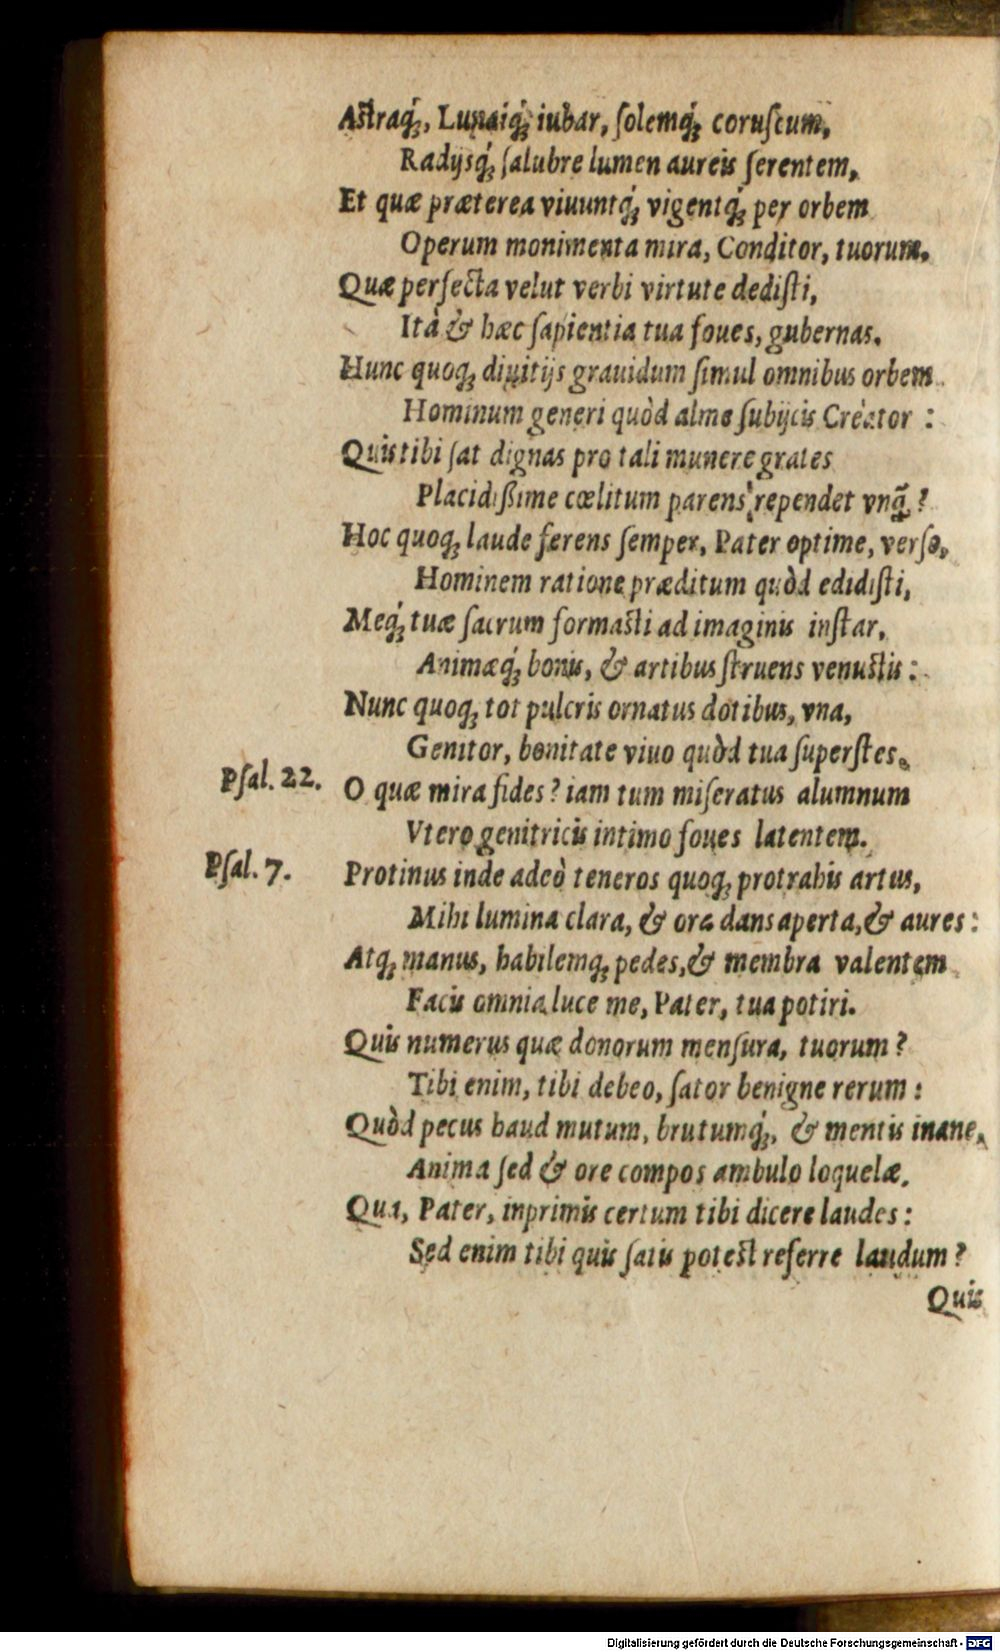 Astraq́;, Lunæiq́; iubar, ſolemq́; coruſcum,
Radijsq́; ſalubre lumen aureis ferentem,
Et quæ præterea viuuntq́; vigentq́; per orbem
Operum monimenta mira, Conditor, tuorum.
Quæ perfecta velut verbi virtute dediſti,
Ità & hæc ſapientia tua foues, gubernas.
Hunc quoq; diuitijs grauidum ſimul omnibus orbem
Hominum generi quòd alme ſubijcis Creator :
Quis tibi ſat dignas pro tali munere grates
Placidißime cœlitum parens rependet vnq̃ ?
Hoc quoq; laude ferens ſemper, Pater optime, verſo,
Hominem ratione præditum quòd edidiſti,
Meq́; tuæ ſacrum formasti ad imaginis inſtar,
Animæq́; bonis, & artibus ſtruens venustis :
Nunc quoq; tot pulcris ornatus dotibus, vna,
Genitor, bonitate viuo quòd tua ſuperſtes.
Pſal. 22. O quæ mira fides? iam tum miſeratus alumnum
Vtero genitricis intimo foues latentem.
Pſal. 7. Protinus inde adeò teneros quoq; protrahis artus,
Mihi lumina clara, & ora dans aperta, & aures :
Atq; manus, habilemq; pedes, & membra valentem
Facis omnia luce me, Pater, tua potiri.
Quis numerus quæ donorum menſura, tuorum ?
Tibi enim, tibi debeo, ſator benigne rerum :
Quòd pecus haud mutum, brutumq́;, & mentis inane,
Anima ſed & ore compos ambulo loquelæ.
Qua, Pater, inprimis certum tibi dicere laudes :
Sed enim tibi quis ſatis potest referre laudum ?
Quis
Digitalisierung gefördert durch die Deutsche Forschungsgemeinschaft - DFG